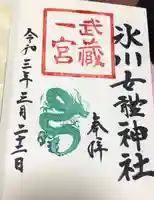 氷川女體神社
奉拝
武藏
一宮
令和三年三月二十一日